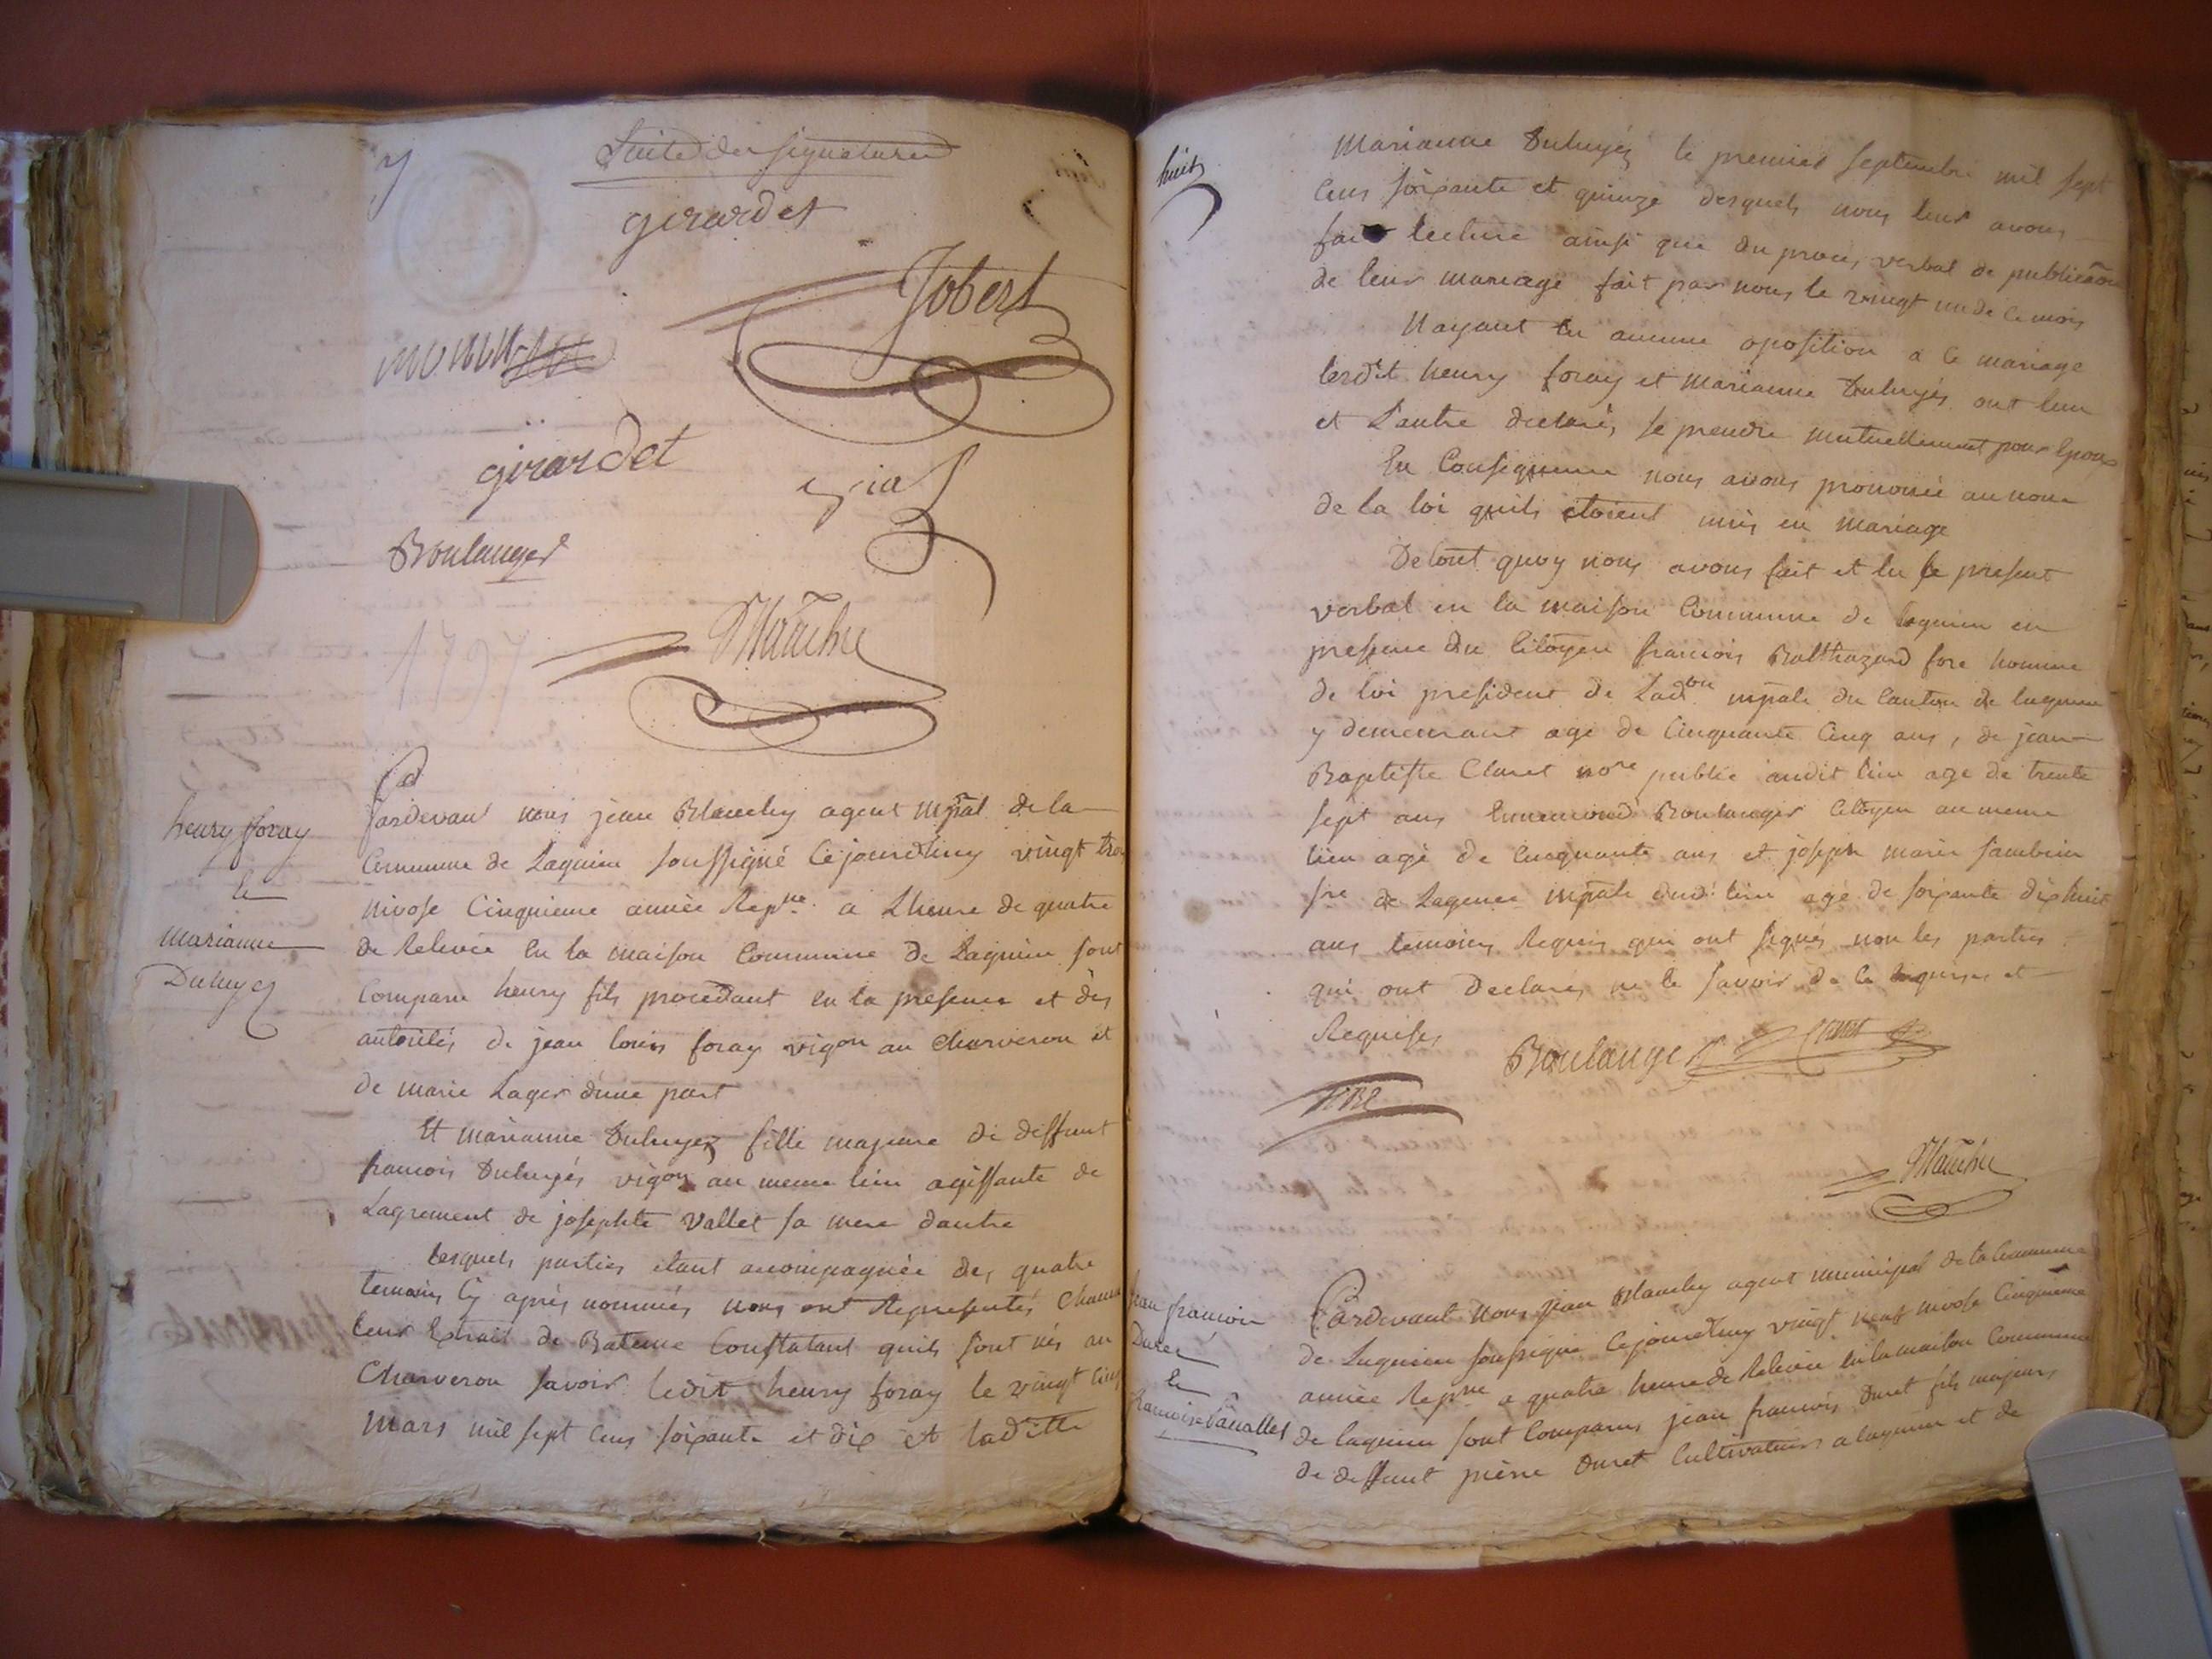 Suite des signatures
girardet
Jobert
monin
girardet
Boulanger
Blanchy
1797
henry foray
et
marianne
Duhuyez
Pardevant nous jean Blanchy agent mpãl de la
Commune de Lagnieu soussigné Cejourdhuy vingt trois
nivose Cinquieme année Repne a Lheure de quatre
de Relevée En la maison Commune de Lagnieu sont
Comparu henry fils procedant En la presence et des
autorités de jean louis foray vigon au charveron et
de marie Lager dune part
Et marianne Duhuyez fille majeure de deffunt
francois Duhuyés vigon au meme lieu agissante de
Lagrement de josephte Vallet sa mere dautre
Lesquels parties étant accompagnée des quatre
temoins Cy aprés nommés nous ont Representés chacun
leur Extrait de Bateme Constatant quils sont nés au
Charveron savoir ledit henry foray le vingt cinq
mars mil sept Cens soixante et dix et laditte
huit
Marianne Duhuyéz le premier septembre mil sept
Cens soixante et quinze desquels nous leur avons
fait lecture ainsi que du proces verbal de publicãon
de leur mariage fait par nous le vingt un de ce mois
Nayant Eu aucune oposition a ce mariage
lesdt henry foray et marianne Duhuyés ont lun
et Lautre declarés se prendre mutuellement pour Epoux
En Consequence nous avons prononcé au nom
de la loi quils étoient unis en mariage
De tout quoy nous avons fait et lu le present
verbal en la maison Commune de lagnieu en
presence du Citoyen francois Balthazard fore homme
de loi president de Ladon mpãle du Canton de lagnieu
y demeurant agé de Cinquante Cinq ans, de jean
Baptiste Claret nore public audit lieu agé de trente
sept ans Ennemond Boulanger Citoyen au meme
lieu agé de Cinquante ans et joseph marie
sre de Lagence mpãle dud. lieu agé de soixante dix huit
ans temoins Requis qui ont signés non les parties
qui ont Declarés ne le savoir de ce Enquises et
Requises
Boulanger
Claret
fore
Blanchy
jean francois
Duret
et
francoise
Pardevant Nous jean Blanchy agent municipal de la Commune
de Lagnieu soussigné Cejourdhuy vingt neuf nivose Cinquieme
année Repne a quatre heure de Relevée En la maison Commune
de lagnieu sont Comparus jean francois Duret fils majeur
de deffunt pierre Duret Cultivateurs a lagnieu et de